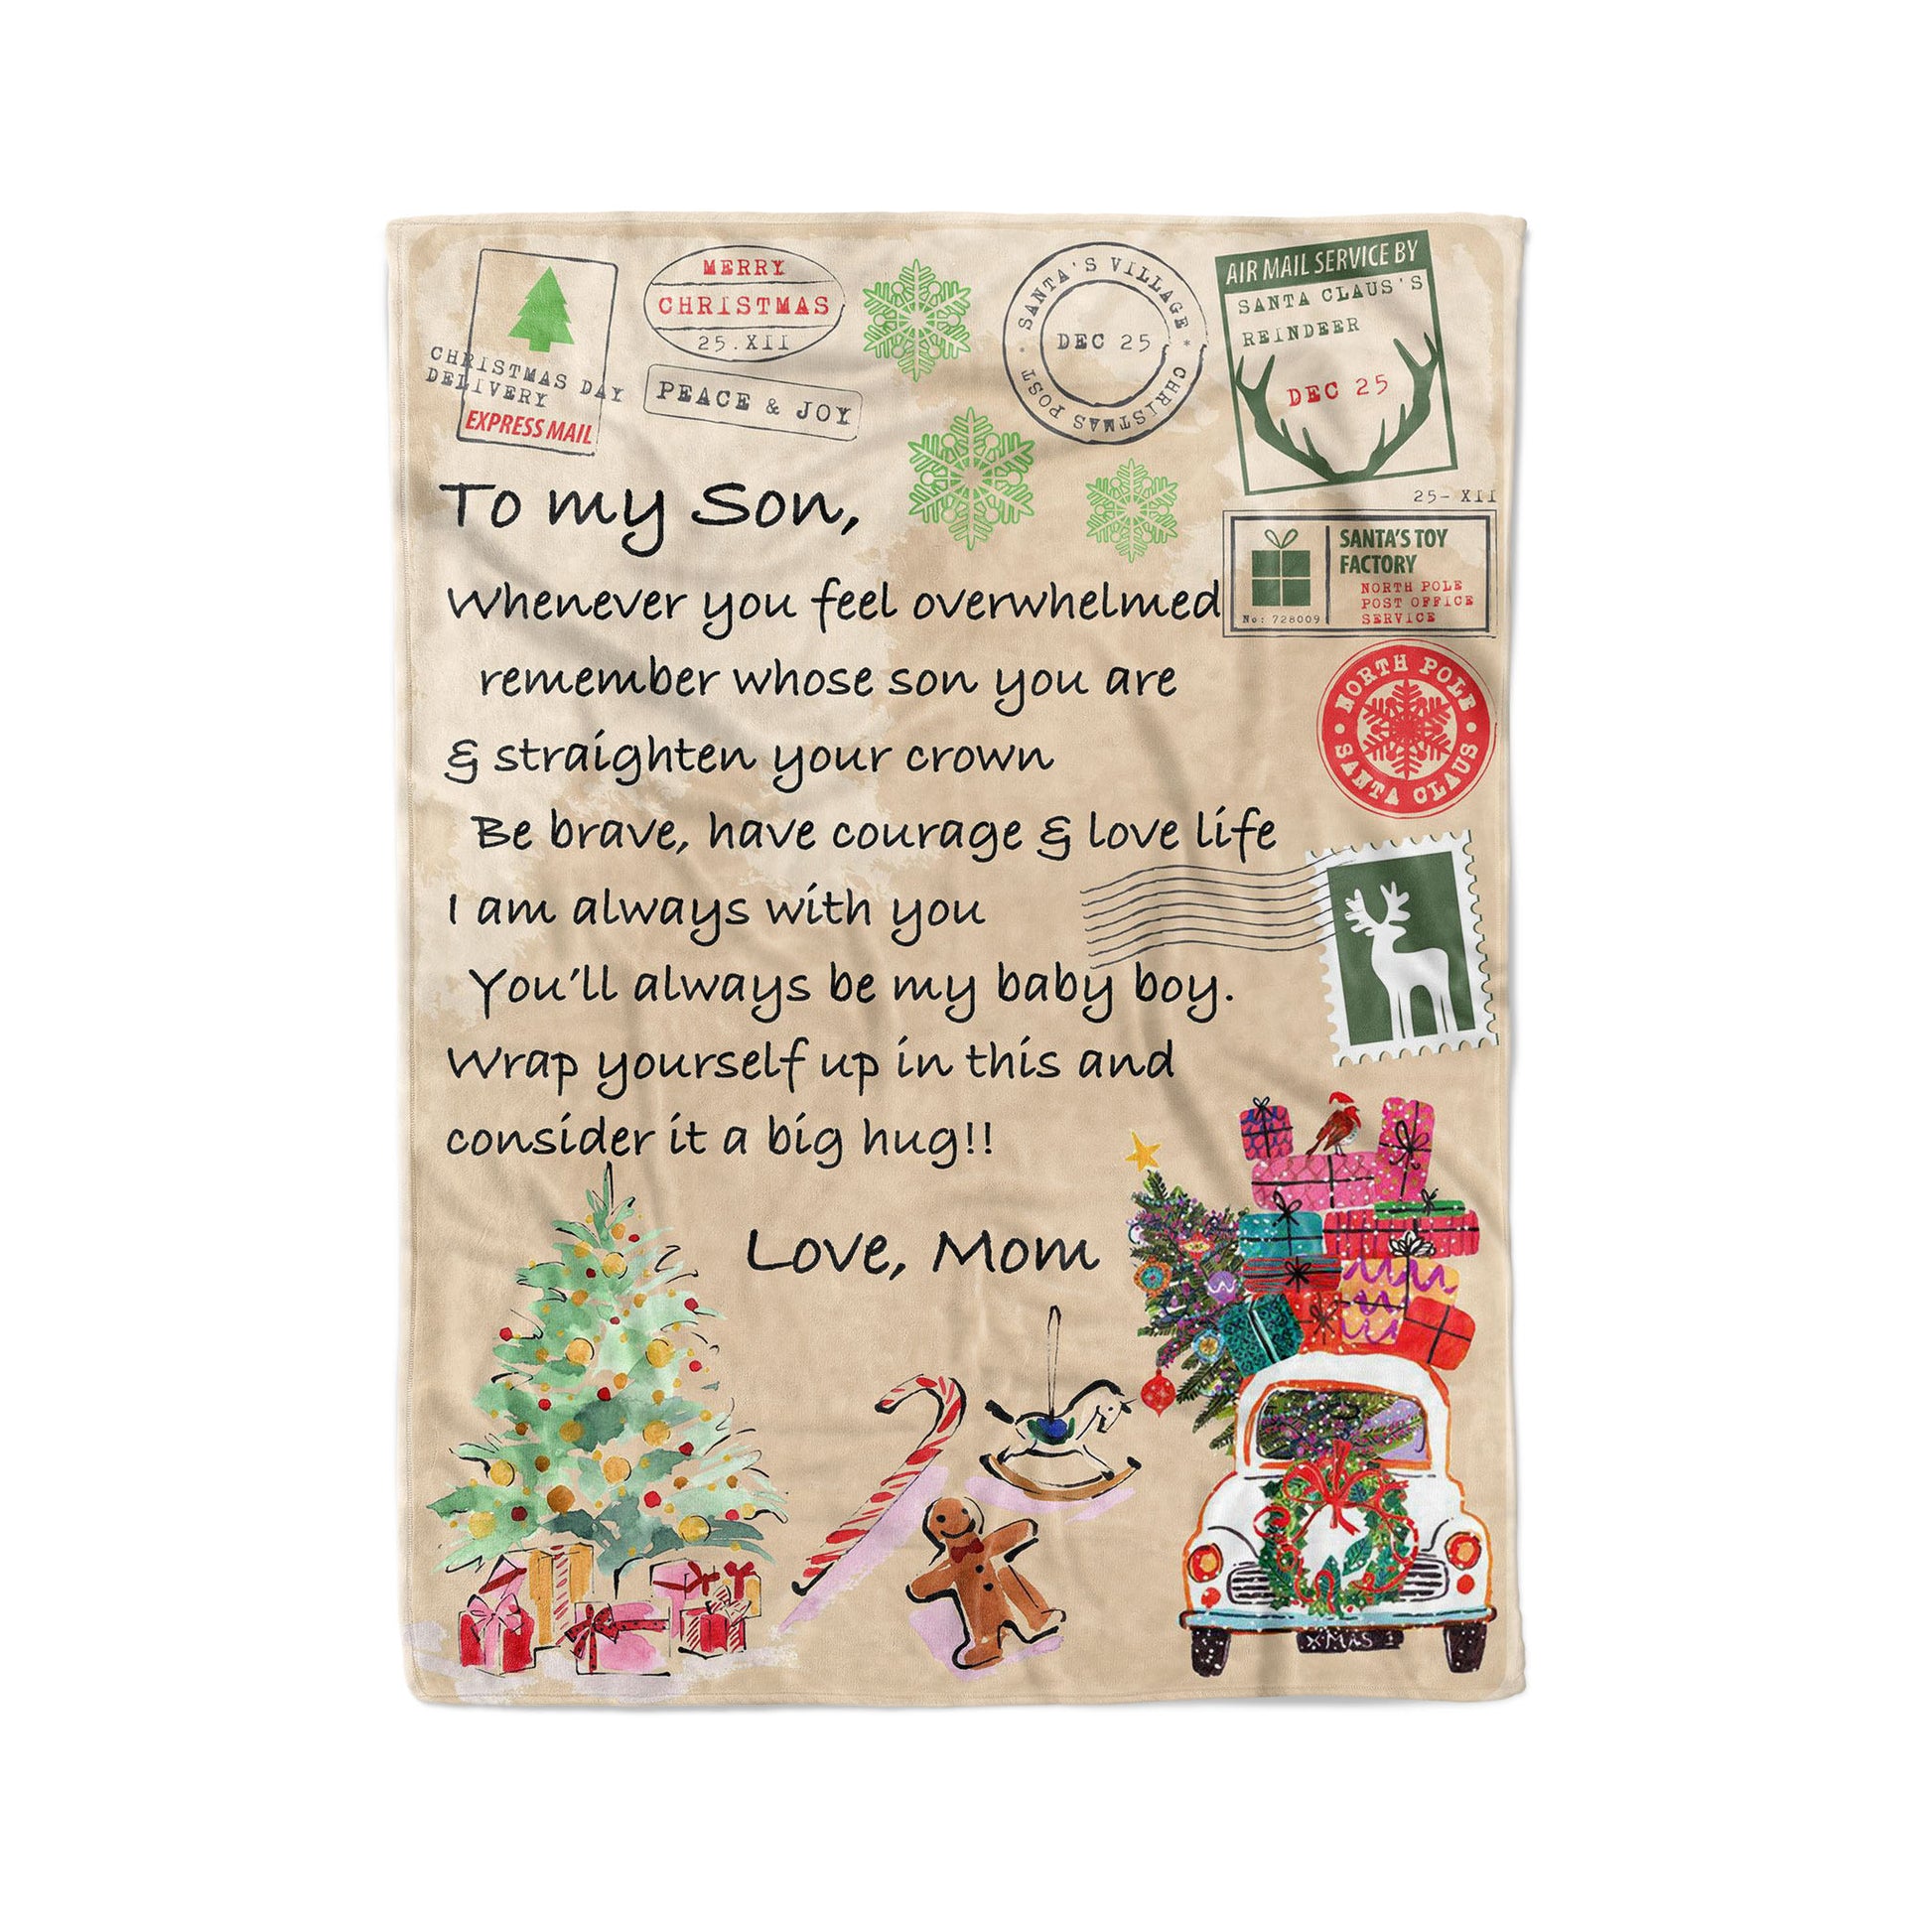 CHRISTMAS DAY
DELIVERY
EXPRESS MAIL
MERRY
CHRISTMAS
25.XII
PEACE & JOY
SANTA'S VILLAGE * CHRISTMAS POST
DEC 25
AIR MAIL SERVICE BY
SANTA CLAUS'S
REINDEER
DEC 25
25- XII
SANTA'S TOY
FACTORY
NORTH POLE
POST OFFICE
SERVICE
No: 728009
NORTH POLE
SANTA CLAUS
To my Son,
Whenever you feel overwhelmed
remember whose son you are
& straighten your crown
Be brave, have courage & love life
I am always with you
You'll always be my baby boy.
Wrap yourself up in this and
consider it a big hug!!
Love, Mom
XMAS 1